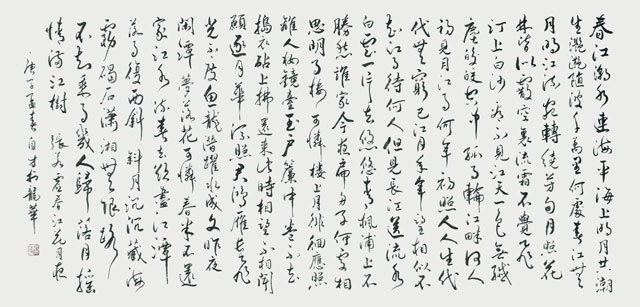 春江潮水連海平海上明月共潮
生灧灧隨波千萬里何處春江無
月明江流宛轉繞芳甸月照花
林皆似霰空裏流霜不覺飛
汀上白沙看不見江天一色無纖
塵皎皎空中孤月輪江畔何人
初見月江月何年初照人人生代
代無窮已江月年年望相似不
知江月待何人但見長江送流水
白雲一片去悠悠青楓浦上不
勝愁誰家今夜扁舟子何處相
思明月樓可憐樓上月徘徊應照
離人妝鏡臺玉戶簾中卷不去
搗衣砧上拂還來此時相望不相聞
願逐月華流照君鴻雁長飛
光不度魚龍潛躍水成文昨夜
閑潭夢落花可憐春半不還
家江水流春去欲盡江潭
落月復西斜斜月沉沉藏海
霧碣石瀟湘無限路
不知乘月幾人歸落月搖
情滿江樹 張若虛春江花月夜
庚子孟春自才於龍華